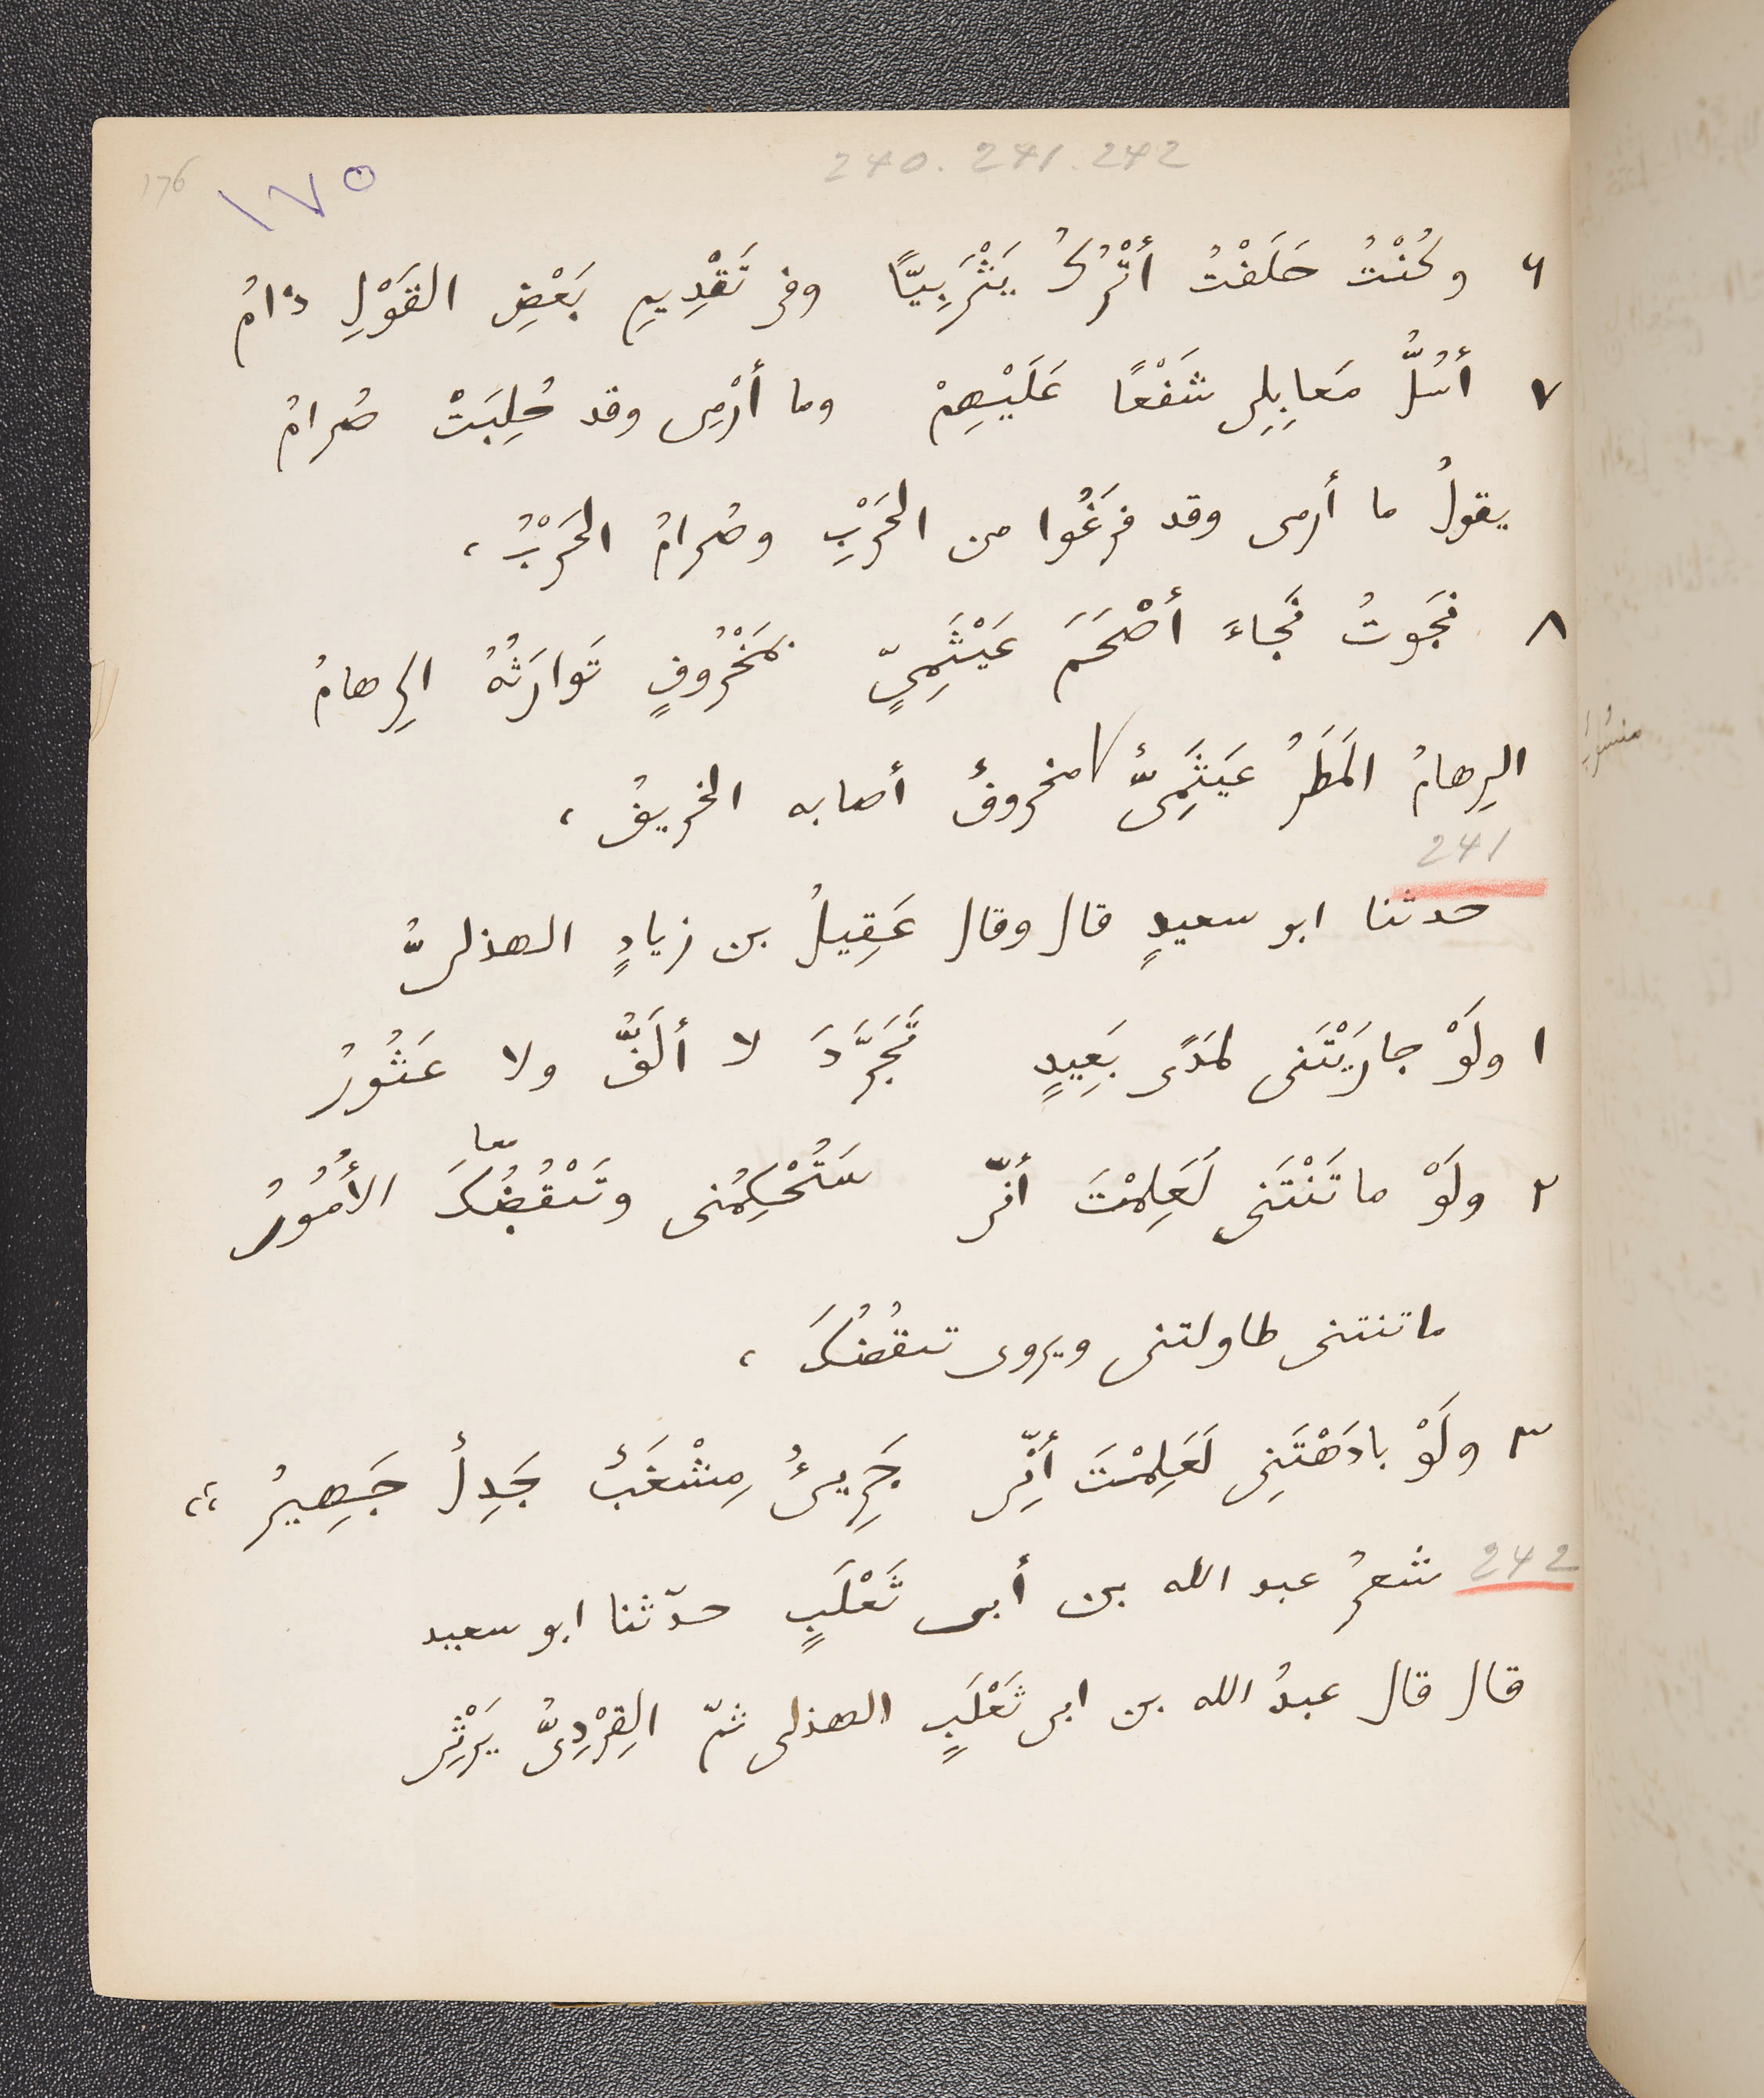 240. 241. 242
176
١٧٥
٦ وكُنْتُ حَلَفْتُ أَتْرُكُ يَثْرَبِيًّا وفى تَقْدِيمِ بَعْضِ القَوْلِ ذامُ
٧ أَسُلُّ مَعابِلِى شَفْعًا عَلَيْهِمْ وما أَرْمِى وقد حُلِبَتْ صُرامُ
يقولُ ما أرمى وقد فَرَغُوا من الحَرْبِ وصُرامُ الحَرْبُ ،
٨ نَجَوتُ نَجاءَ أَصْحَمَ عَيْثَمِيٍّ بمَخْرُوفٍ تَوارَثُهُ الرِهامُ
الرِهامُ المَطَرُ عَيْثَمِىٌّ مخروفٌ أصابه الخريفُ ،
241
حدثنا ابو سعيدٍ قال وقال عَقِيلُ بن زيادٍ الهذلىُّ
١ ولَوْ جارَيْتَنى لمَدًى بَعِيدٍ تَجَرَّدَ لا أَلَفُّ ولا عَثُورُ
معا
٢ ولَوْ ماتَنْتَنى لَعَلِمْتَ أَنّى سَتُحْكِمُنى وتَنْقُضُكَ الأُمُورُ
ماتنتنى طاولتنى ويروى تنقُضُكَ ،
٣ ولَوْ بادَهْتَنِى لَعَلِمْتَ أَنِّى جَرِىءٌ مِشْغَبٌ جَدِلٌ جَهِيرُ ،،
242 شعرُ عبد الله بن أبى ثَعْلَبٍ حدّثنا ابو سعيد
قال قال عبدُ الله بن ابى ثَعْلَبٍ الهذلى ثمّ القِرْدِىُّ يَرْثِى